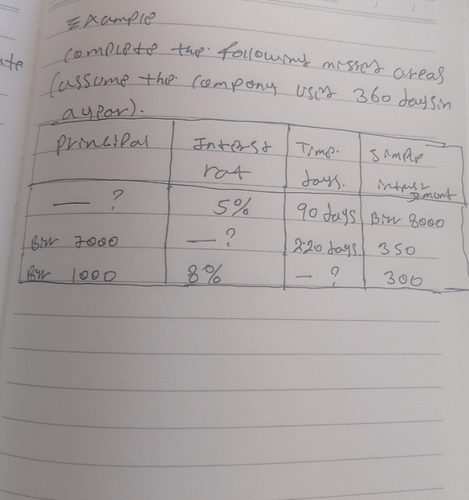 Example
complete the following misses areas
(assume the company uses 360 days in
a year).
principal Interst rat Time. days. simple interst
— ? 5% 90 days Birr 8000
Birr 7000 — ? 220 days 350
Birr 1000 8% — ? 300